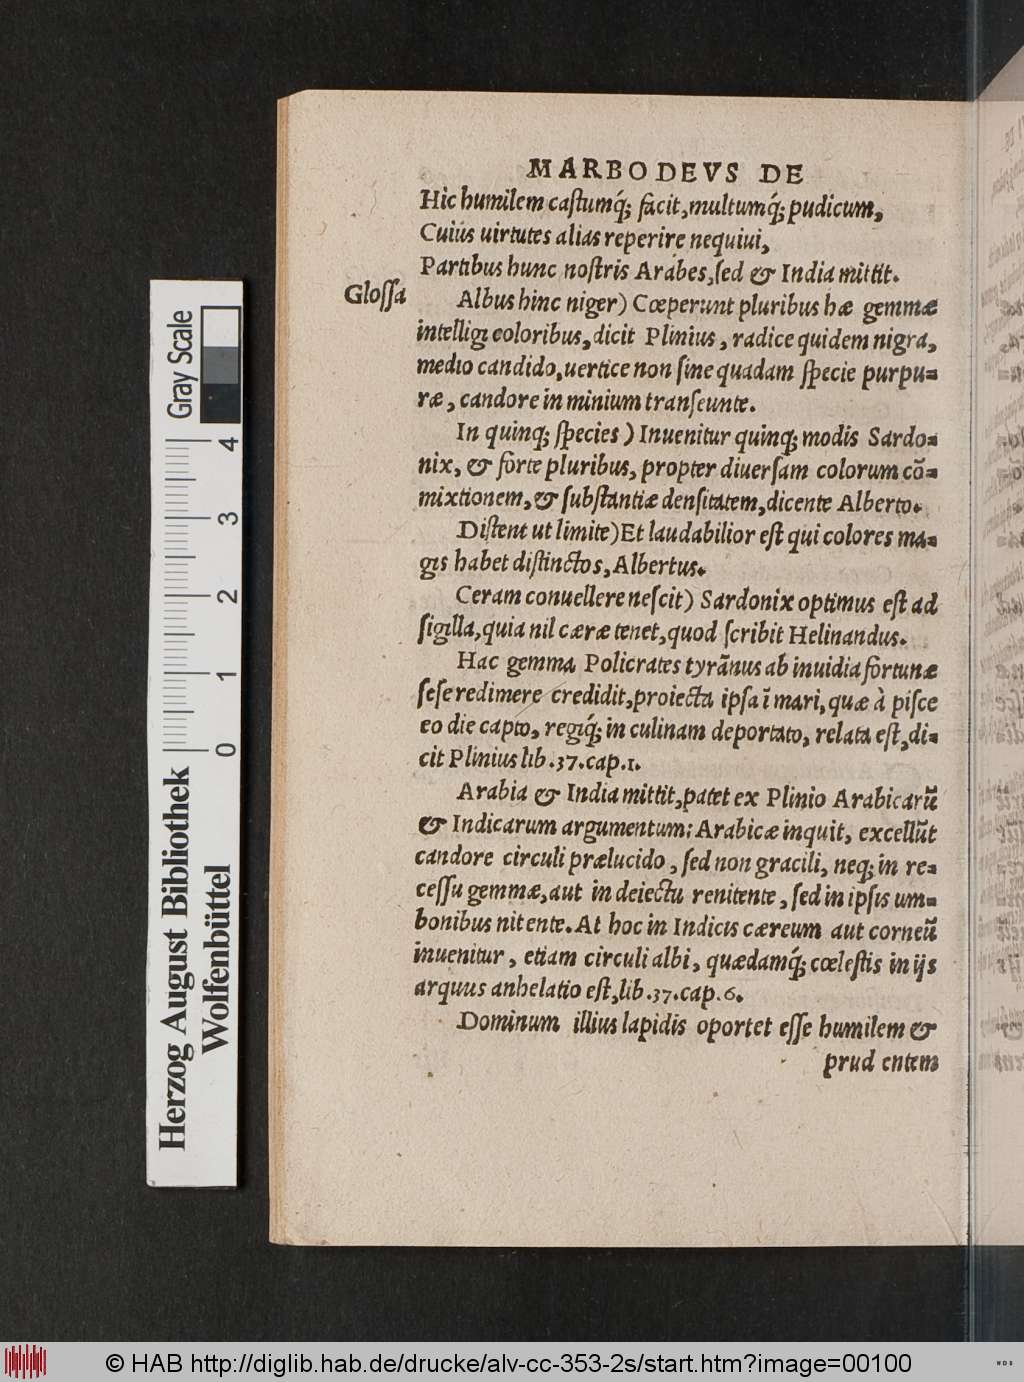 MARBODEVS DE
Hic humilem caſtumq́; facit, multumq́; pudicum,
Cuius uirtutes alias reperire nequiui,
Partibus hunc noſtris Arabes, ſed & India mittit.
Gloſſa
Albus hinc niger) Cœperunt pluribus hæ gemmæ
intelligi coloribus, dicit Plinius, radice quidem nigra,
medio candido, uertice non ſine quadam ſpecie purpu=
ræ, candore in minium tranſeunte.
In quinq; ſpecies) Inuenitur quinq; modis Sardo=
nix, & forte pluribus, propter diuerſam colorum cō=
mixtionem, & ſubſtantiæ denſitatem, dicente Alberto.
Diſtent ut limite) Et laudabilior eſt qui colores ma=
gis habet diſtinctos, Albertus.
Ceram conuellere neſcit) Sardonix optimus eſt ad
ſigilla, quia nil cæræ tenet, quod ſcribit Helinandus.
Hac gemma Policrates tyrãnus ab inuidia fortunæ
ſeſe redimere credidit, proiecta ipſa ĩ mari, quæ à piſce
eo die capto, regiq́; in culinam deportato, relata eſt, di=
cit Plinius lib. 37. cap. 1.
Arabia & India mittit, patet ex Plinio Arabicarũ
& Indicarum argumentum: Arabicæ inquit, excellũt
candore circuli prælucido, ſed non gracili, neq; in re=
ceſſu gemmæ, aut in deiectu renitente, ſed in ipſis um=
bonibus nitente. At hoc in Indicis cæreum aut corneũ
inuenitur, etiam circuli albi, quædamq́; cœleſtis in ijs
arquus anhelatio eſt, lib. 37. cap. 6.
Dominum illius lapidis oportet eſſe humilem &
prud entem
Gray Scale
4
3
2
1
0
Herzog August Bibliothek
Wolfenbüttel
© HAB http://diglib.hab.de/drucke/alv-cc-353-2s/start.htm?image=00100